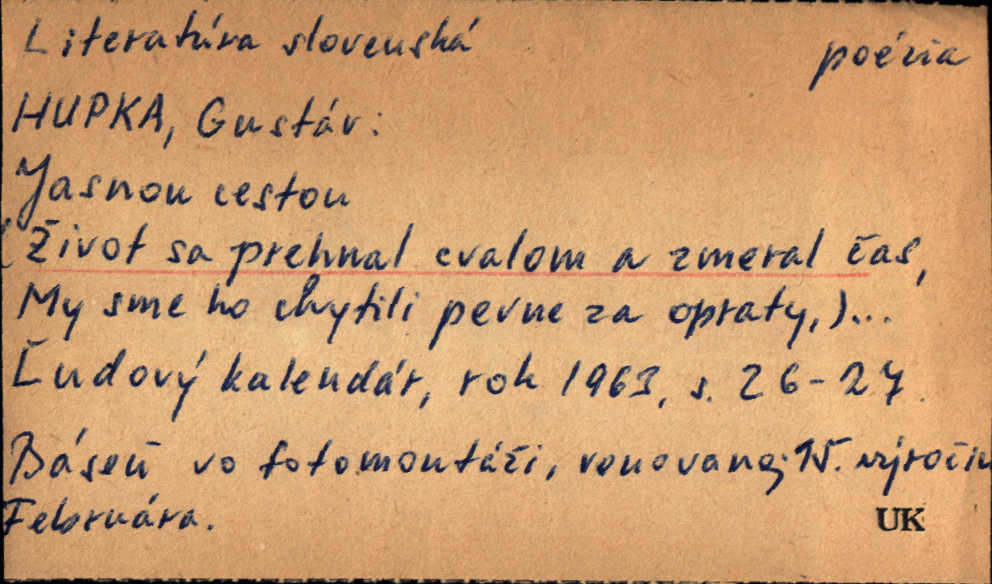 Literatúra slovenská poézia
HUPKA, Gustáv:
Jasnou cestou
(Život sa prehnal cvalom a zmeral čas,
My sme ho chytili pevne za opraty,)...
Ľudový kalendár, rok 1963, s. 26-27.
Báseň vo fotomontáži, venovanej 15. výročiu
Februára.
UK